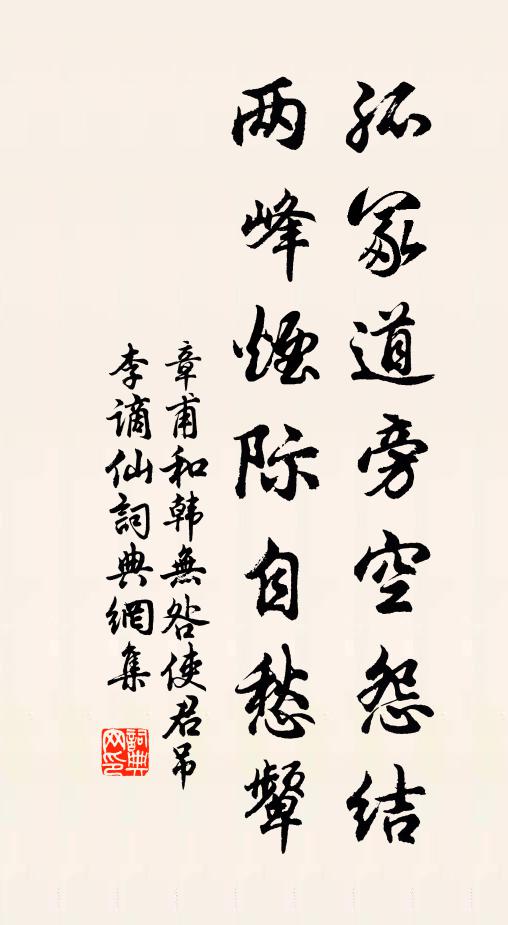 孤冢道旁空怨结
两峰烟际自愁颦
章甫和韩無咎使君吊
李谪仙詞典網集
詞典网印